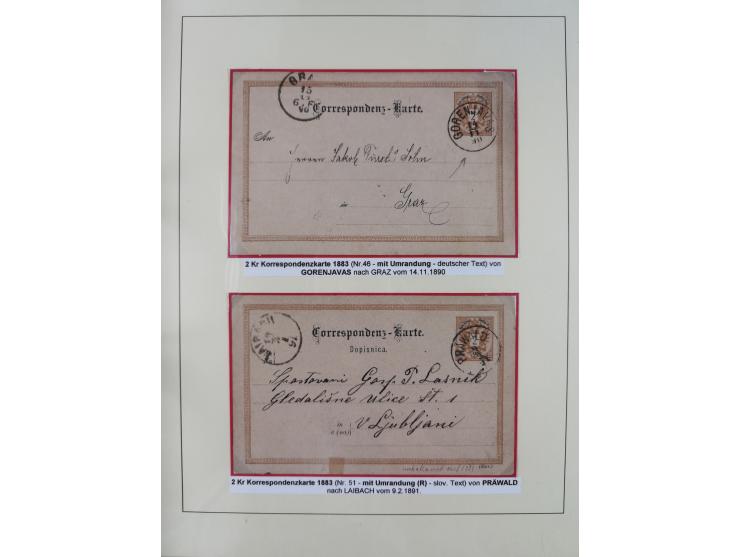 GRA
15
Correspondenz-Karte.
GORENJAVAS
An
Herren Jakob Sohn
in Graz
2 Kr Korrespondenzkarte 1883 (Nr.46 - mit Umrandung - deutscher Text) von
GORENJAVAS nach GRAZ vom 14.11.1890
LAIBACH
Correspondenz-Karte.
PRÄWALD
Dopisnica.
Spoštovani Gosp. P. Lasnik
Gledališne ulice Št. 1
in
v (na)
V Ljubljani
2 Kr Korrespondenzkarte 1883 (Nr. 51 - mit Umrandung (R) - slov. Text) von PRÄWALD
nach LAIBACH vom 9.2.1891.